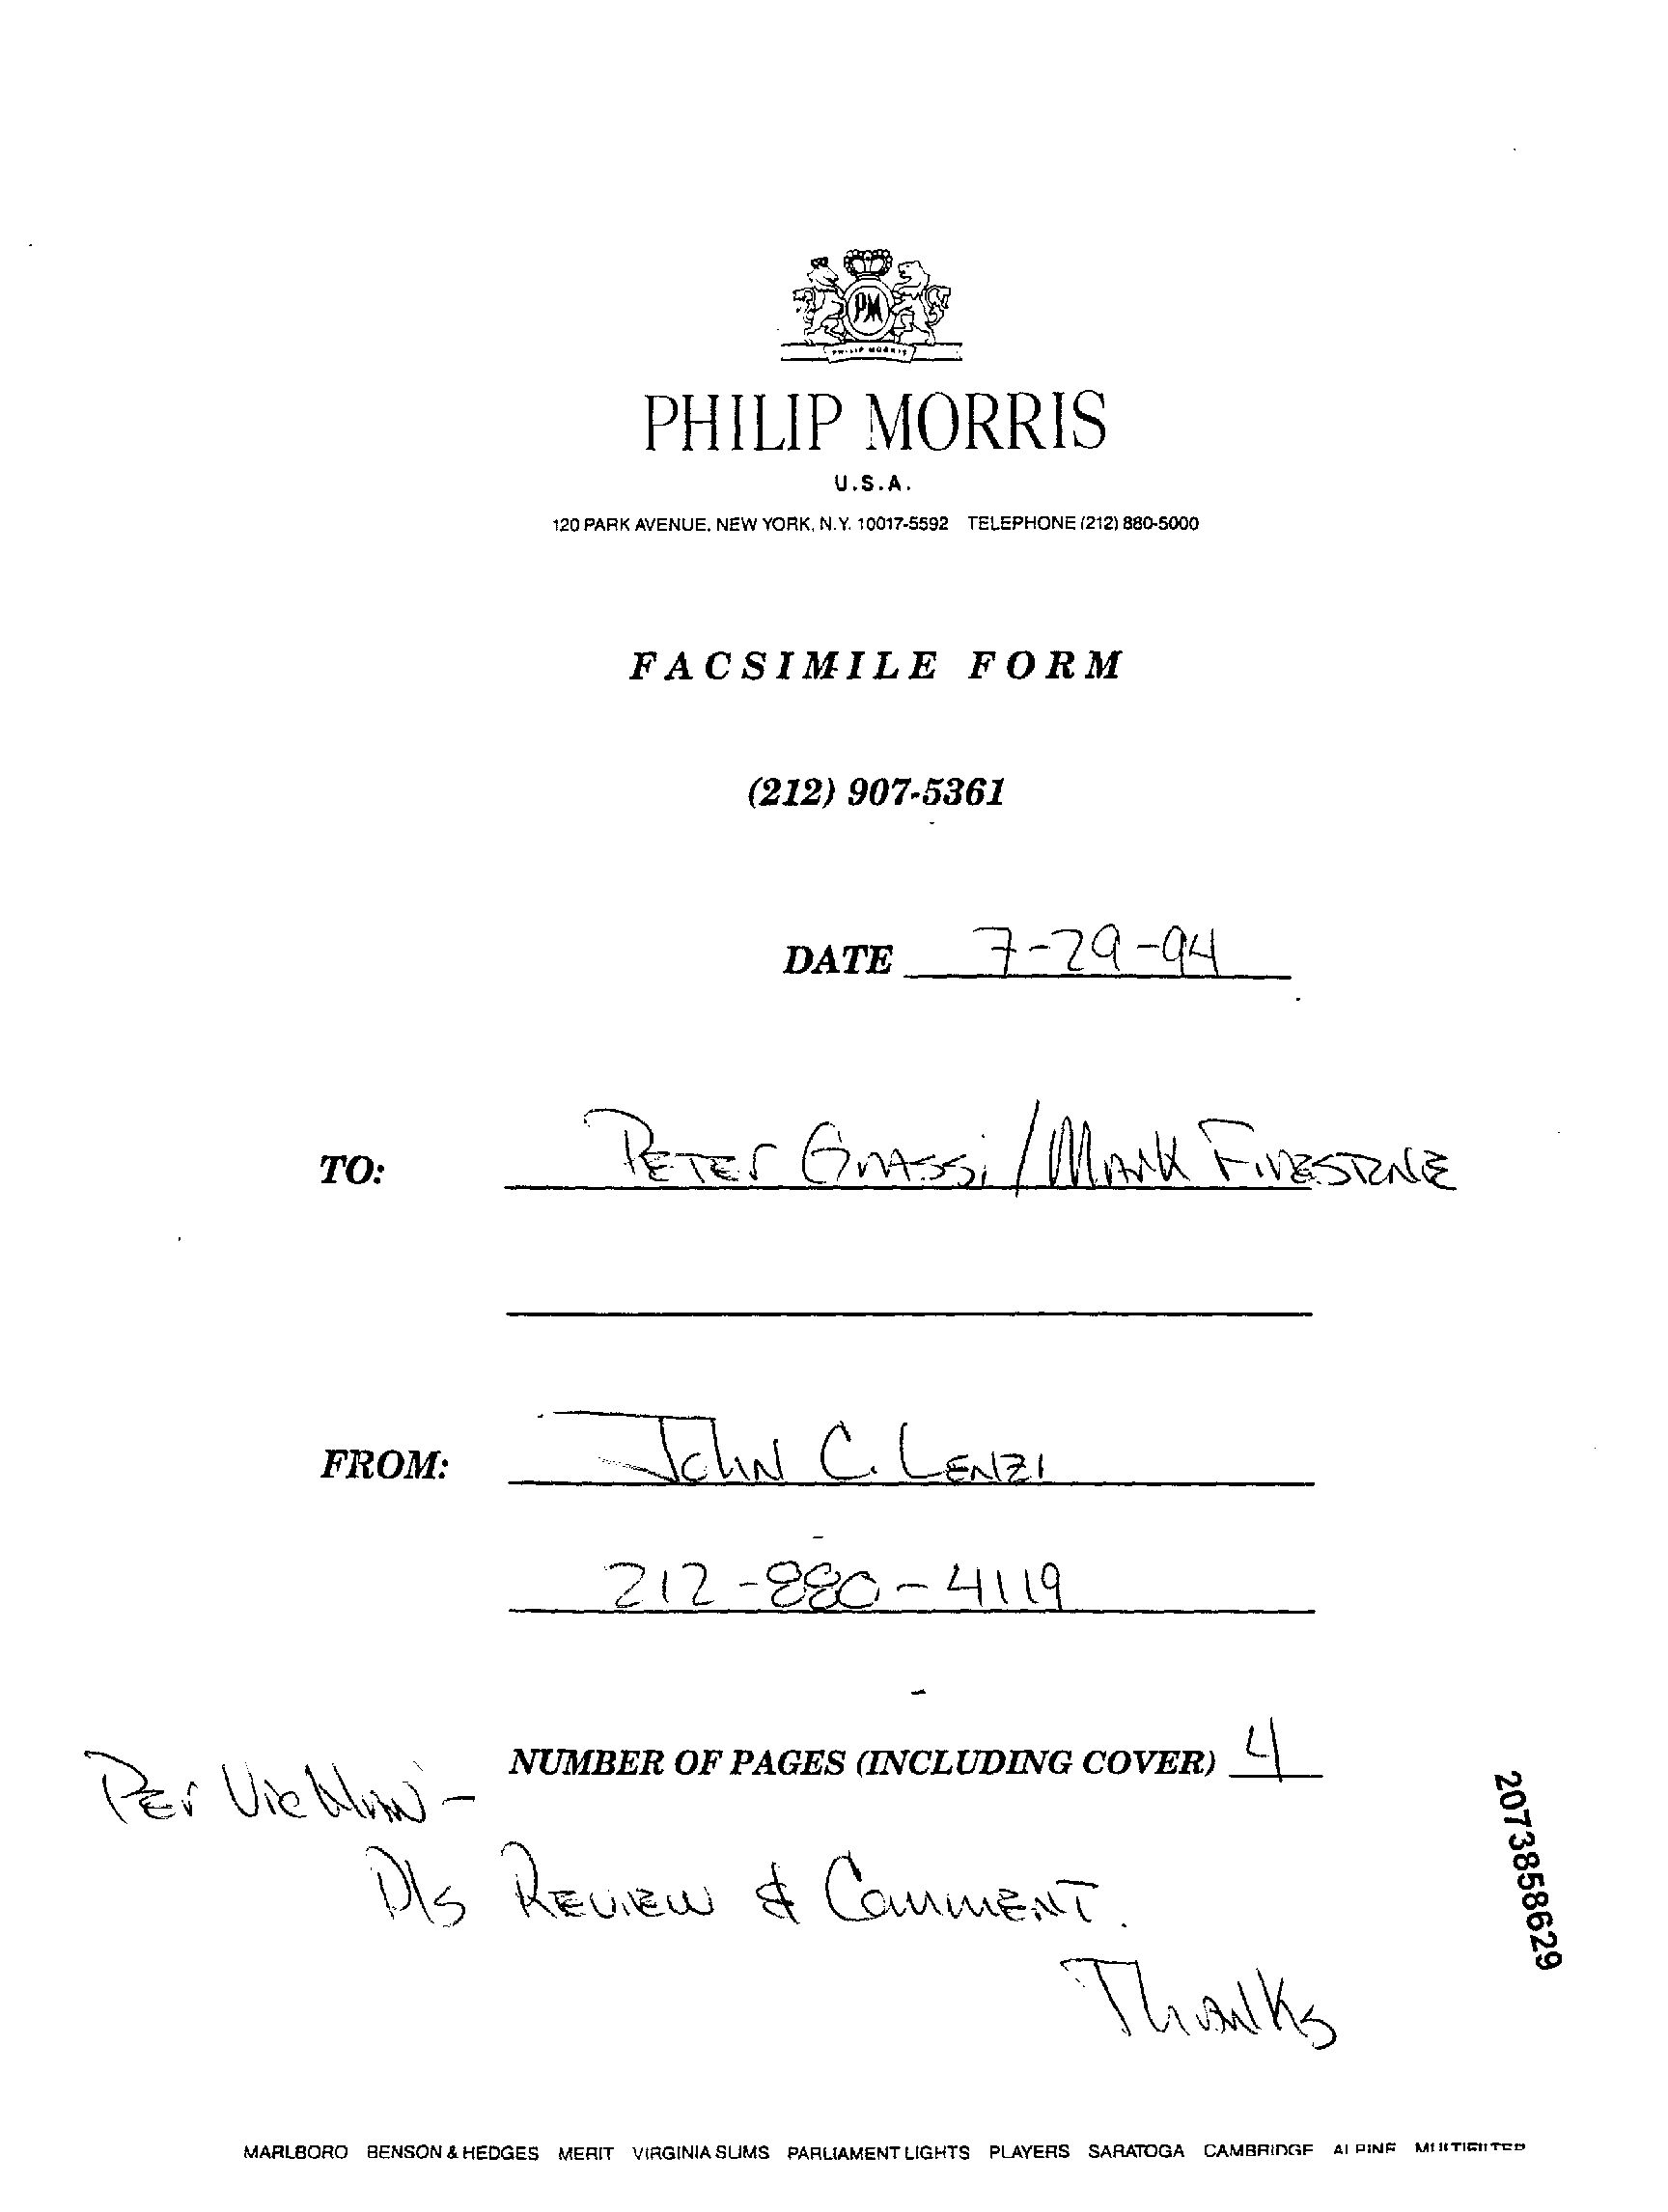 PM
PHILIP MORRIS
PHILIP MORRIS
U.S.A.
120 PARK AVENUE, NEW YORK, N.Y. 10017-5592 TELEPHONE (212) 880-5000
FACSIMILE FORM
(212) 907-5361
DATE 7-29-94
TO: PETER GRASSi / MARK FIRESTONE
FROM: JOHN C. LENZI
212-880-4119
NUMBER OF PAGES (INCLUDING COVER) 4
PEr Vic -
Pls REVIEW & COMMENT.
THANKS
2073858629
MARLBORO BENSON & HEDGES MERIT VIRGINIA SLIMS PARLIAMENT LIGHTS PLAYERS SARATOGA CAMBRIDGE ALPINE MULTIFILTER